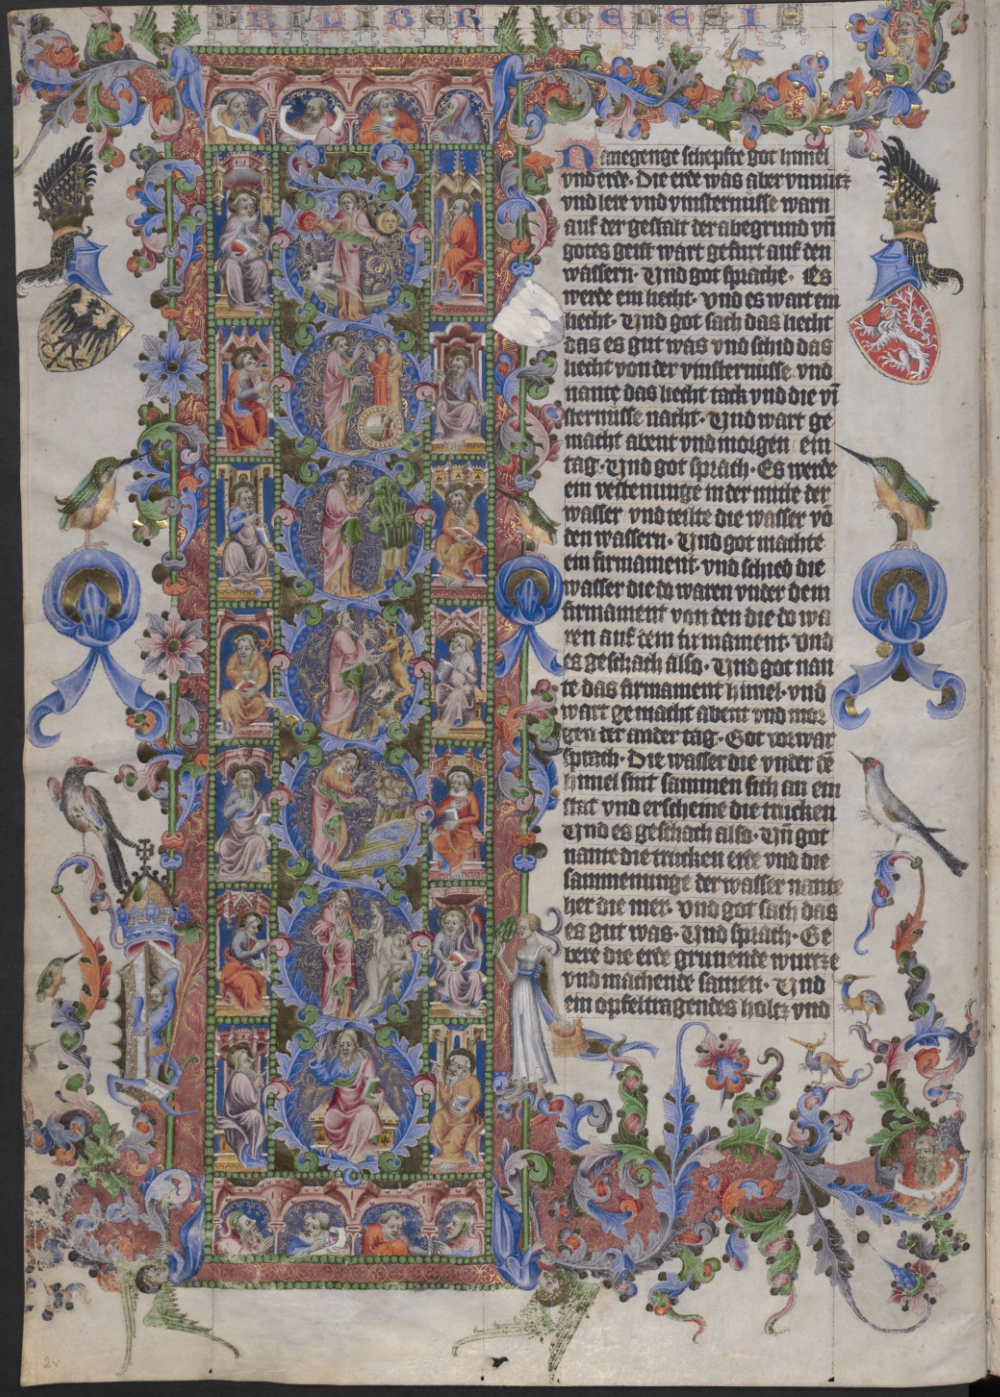 BRI LIBER GENESIS
Nanegenge schepfte got himel
vnd erde. Die erde was aber vnnucz
vnd lere vnd vinsternusse warn
auf der gestalt der abegrund vñ
gotes geist wart gefurt auf den
wassern. Vnd got sprache. Es
werde ein liecht. vnd es wart ein
liecht. Vnd got sach das liecht
das es gut was vnd schid das
liecht von der vinsternusse vnd
nante das liecht tack vnd die vī
sternusse nacht. Vnd wart ge
macht abent vnd morgen ein
tag. Vnd got sprach. Es werde
ein vestenunge in der mitte der
wasser vnd teilte die wasser vō
den wassern. Vnd got machte
ein firmament. vnd schied die
wasser die do waren vnder dem
firmament von den die do wa
ren auf dem firmament. vnd
es geschach also. Vnd got nan
te das firmament himel. vnd
wart gemacht abent vnd mor
gen der ander tag. Got vorwar
sprach. Die wasser die vnder dē
himel sint sammen sich an ein
stat vnd erscheine die trucken
Vnd es geschach also. Vñ got
nante die trucken erde vnd die
sammenunge der wasser nante
her die mer. vnd got sach das
es gut was. Vnd sprach. Ge
bere die erde grunende wurcze
vnd machende samen. Vnd
ein opfeltragendes holcz vnd
2v